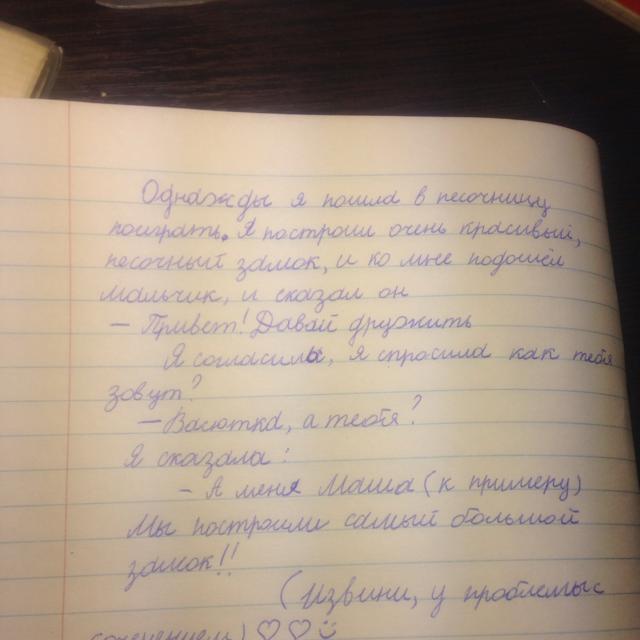 Однажды я пошла в песочницу
поиграть. Я построил очень красивый,
песочный замок, и ко мне подошёл
мальчик, и сказал он
— Привет! Давай дружить
Я согласилa, я спросила как тебя
зовут?
— Васютка, а тебя?
Я сказала:
— А меня Маша (к примеру)
Мы построили самый большой
замок!!
(Извини, у проблемы с
сочинением) ♡♡☺